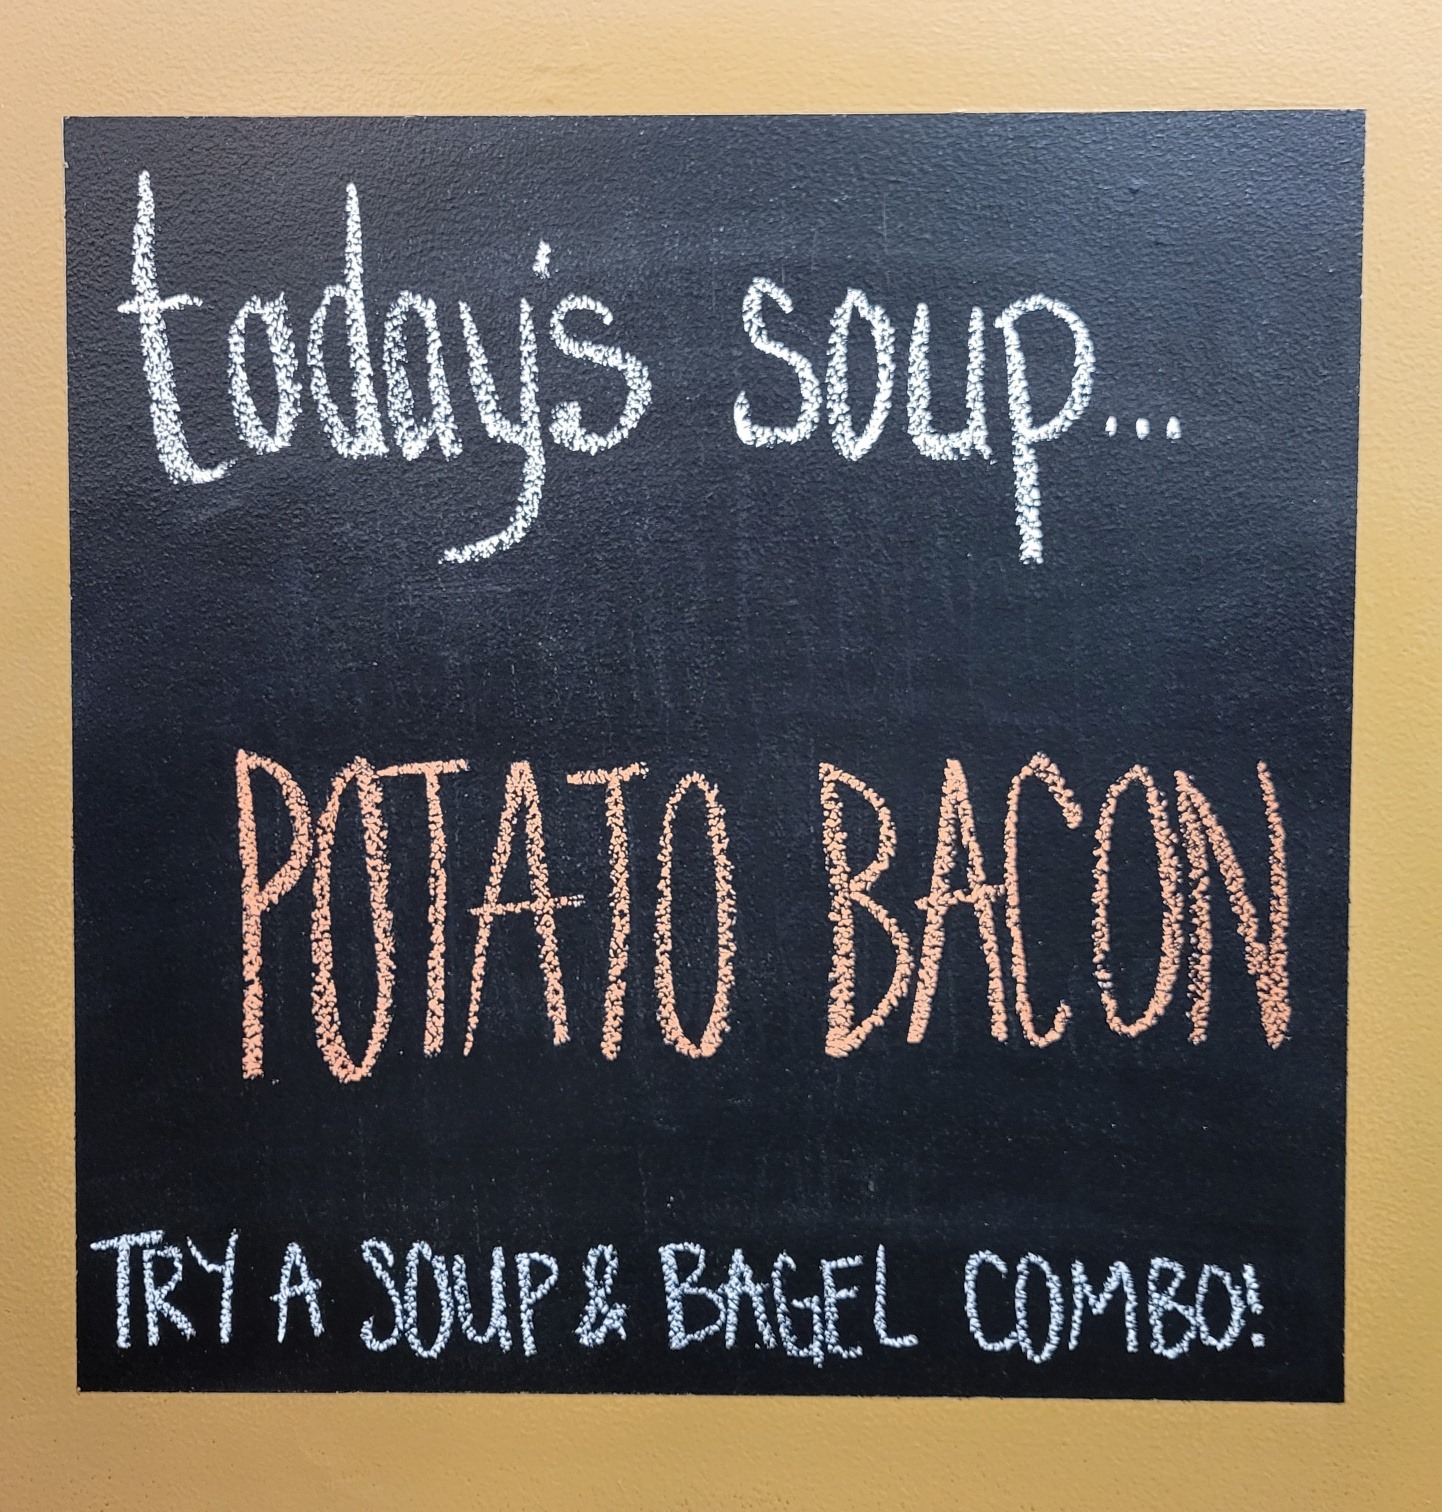 today's soup...
POTATO BACON
TRY A SOUP & BAGEL COMBO!